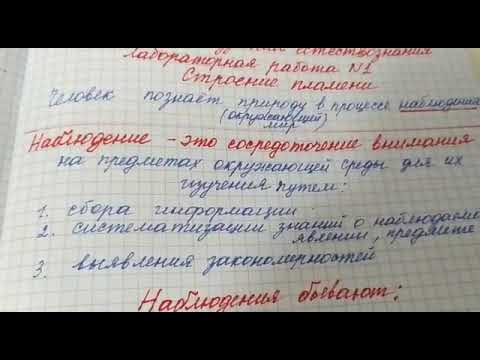 естествознания
Лабораторная работа №1
Строение пламени
Человек познаёт природу в процессе наблюдения
(окружающий
мир)
Наблюдение - это сосредоточение внимания
на предметах окружающей среды для их
изучения путем:
1. сбора информации
2. систематизации знаний о наблюдаемо
явлении, предмете
3. выявления закономерностей
Наблюдения бывают: